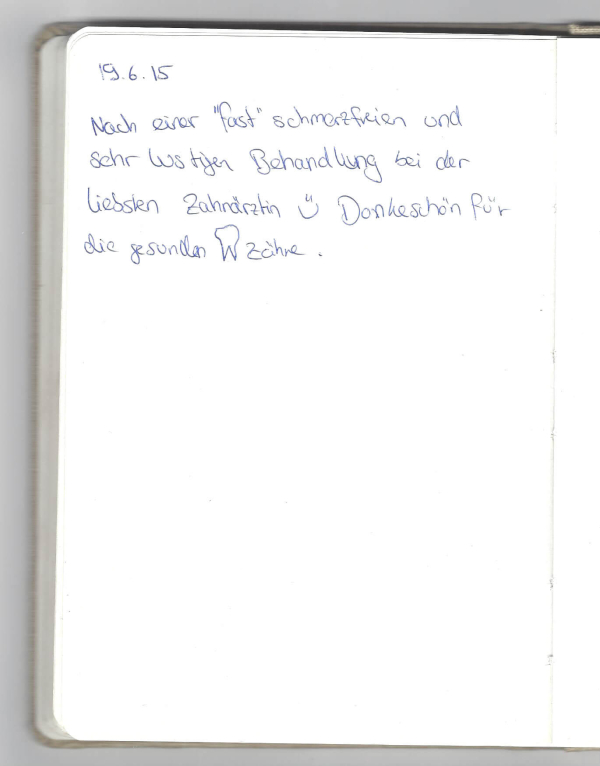 19.6.15
Nach einer "fast" schmerzfreien und
sehr lustigen Behandlung bei der
liebsten Zahnärztin ü Dankeschön für
die gesunden Zähne.